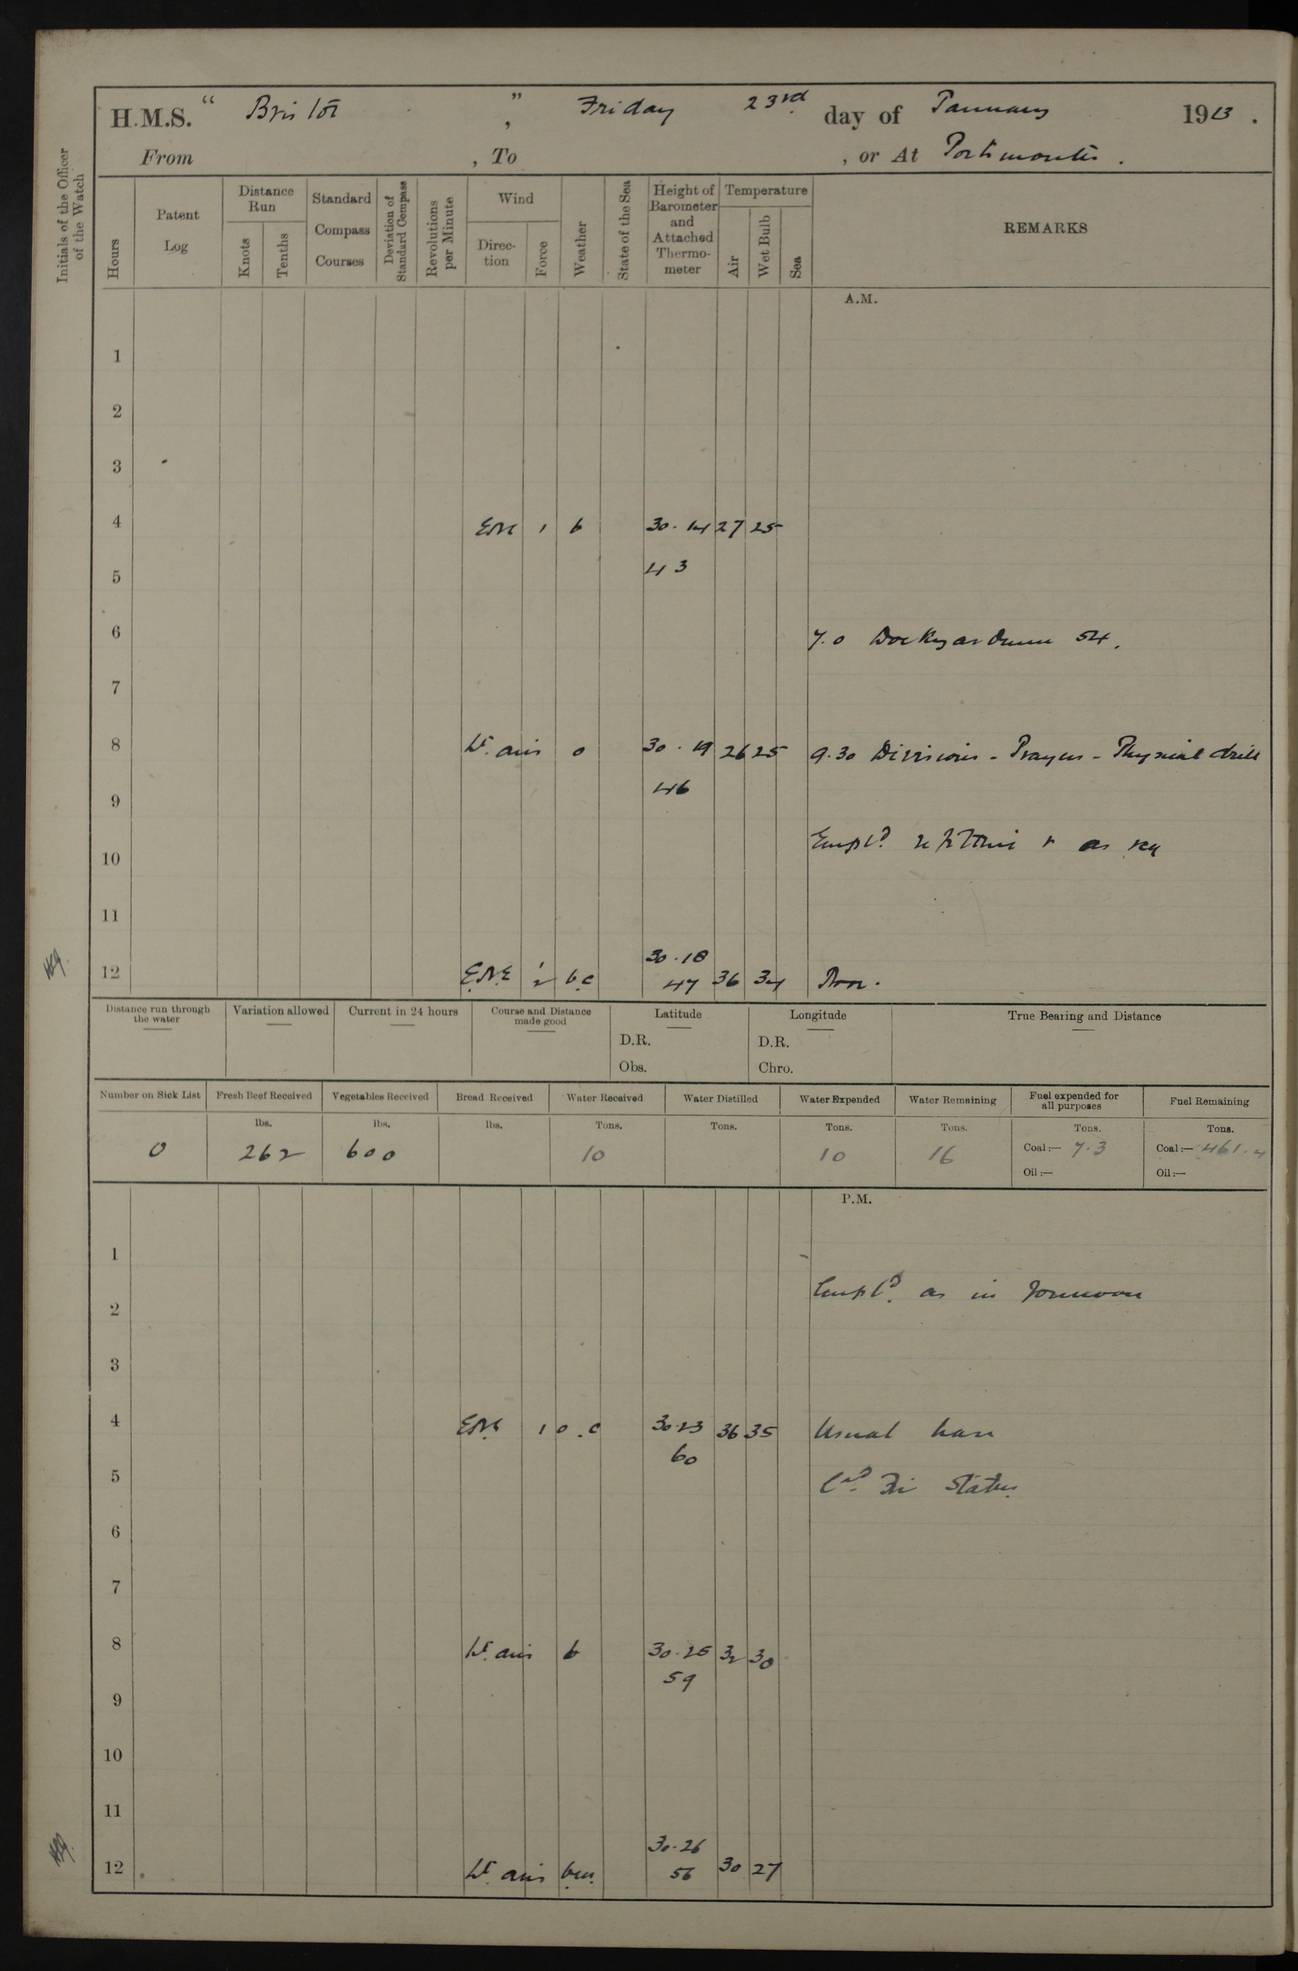 H.M.S. “ Bristol ” , Friday 23rd day of January 1913 .
From , To , or At Portsmouth .
Initials of the Officer of the Watch
Hours
Patent Log
Distance Run
Knots
Tenths
Standard Compass Courses
Deviation of Standard Compass
Revolutions per Minute
Wind
Direction
Force
Weather
State of the Sea
Height of Barometer and Attached Thermometer
Temperature
Air
Wet Bulb
Sea
REMARKS
A.M.
1
2
3
4 ENE 1 b 30.14 27 25
43
5
6
7.0 Dockyardmen 54.
7
8 Lt. airs o 30.19 26 25 9.30 Divisions - Prayers - Physical drill
46
9
10 Empld. refitting & as req
11
12 E.N.E 1/2 b.c 30.18 36 34
47
Distance run through the water
Variation allowed
Current in 24 hours
Course and Distance made good
Latitude
D.R.
Obs.
Longitude
D.R.
Chro.
True Bearing and Distance
Number on Sick List 0
Fresh Beef Received lbs. 262
Vegetables Received lbs. 600
Bread Received lbs.
Water Received Tons. 10
Water Distilled Tons.
Water Expended Tons. 10
Water Remaining Tons. 16
Fuel expended for all purposes Tons.
Coal:— 7.3
Oil:—
Fuel Remaining Tons.
Coal:— 461.4
Oil:—
P.M.
1
Empld. as in forenoon
2
3
4 ENE 1 o.c 30.23 36 35 Usual leave
60
5 Fire Stations
6
7
8 Lt. airs b 30.25 32 30
59
9
10
11
12 Lt. airs b.m. 30.26 30 27
56